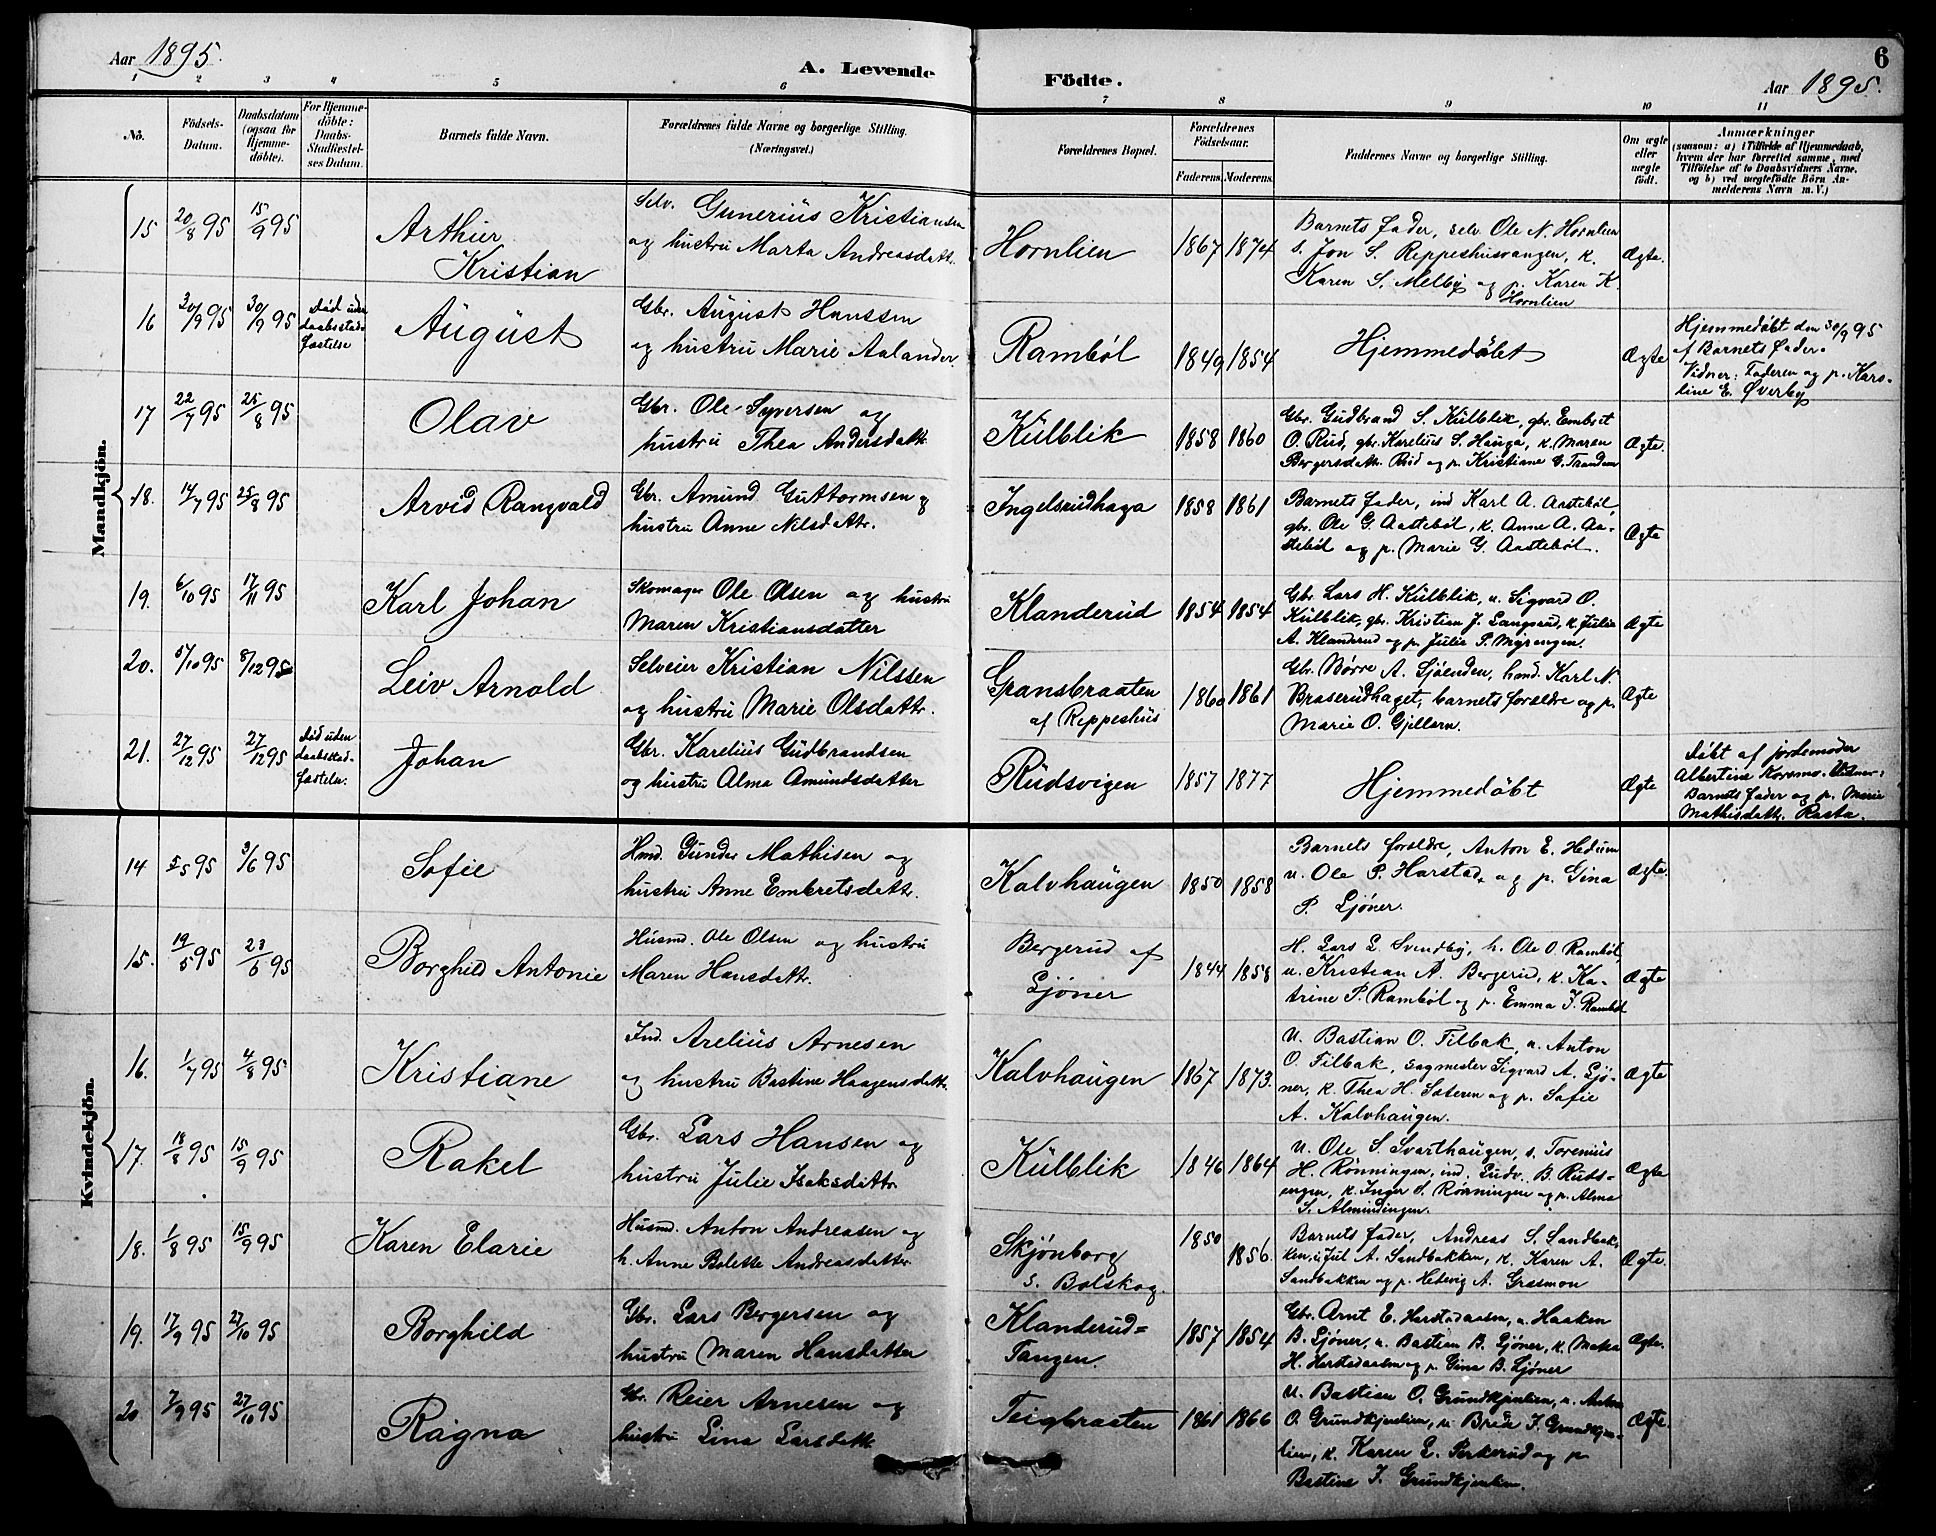 Aar 1895.
A. Levende Födte.
6
Aar 1895.
1 2 3 4 5 6 7 8 9 10 11
No.
Födsels-Datum.
Daabsdatum (ogsaa for Hjemmedöbte).
For Hjemmedöbte: Daabs-Stadfæstelses Datum.
Barnets fulde Navn.
Forældrenes fulde Navne og borgerlige Stilling. (Næringsvei.)
Forældrenes Bopæl.
Forældrenes Födselsaar.
Faderens. Moderens.
Faddernes Navne og borgerlige Stilling.
Om ægte eller uægte födt.
Anmærkninger
(saasom: a) i Tilfælde af Hjemmedaab, hvem der har forrettet samme, med Tilföielse af to Daabsvidners Navne. og b) ved uægtefödte Börn Anmelderens Navn m. V.)
Mandkjön.
15 20/8 95 15/9 95
Arthur Kristian
Selv. Gunerius Kristiansen
og hustru Marta Andreasdatt.
Hornlien
1867 1874
Barnets fader, selv. Ole N. Hornlien
s. Jon S. Reppeshusvangen, k.
Karen S. Melby og p. Karen K.
Hornlien
Ægte.
16 30/9 95 30/9 95
Död uden
daabsstad-
fæstelse
August
Gbr. August Hanssen
og hustru Marie Aalander.
Ramböl
1849 1854
Hjemmedöbt
Ægte
Hjemmedöbt den 30/9 95
af Barnets fader.
Vidner: Faderen og p. Karo-
line E. Øverby
17 22/7 95 25/8 95
Olav
Gbr. Ole Syversen og
hustru Thea Andersdatt.
Kulblik
1858 1860
Gbr. Gudbrand S. Kulblik, gbr. Embret
O. Rud, gbr. Karelius S. Hauga, k. Maren
Bergersdatt. Rud og p. Kristiane
Ægte.
18. 14/7 95 25/8 95
Arvid Rangvald
Gbr. Amund Guttormsen og
hustru Anne Nilsdatt.
Ingelsrudhaga
1858 1861
Barnets fader, ind Karl A. Aastebøl,
gbr. Ole G. Aastebøl, k. Anne A. Aa-
stebøl og p. Marie G. Aastebøl.
Ægte
19. 6/10 95 17/11 95
Karl Johan
Skomager Ole Olsen og hustru
Maren Kristiansdatter
Klanderud
1854 1854
Gbr. Lars H. Kulblik, u. Sigvard O.
Kulblik, gbr. Kristian J. k. Julie
A. Klanderud og p. Julie P. Myrengen.
Ægte
20. 5/10 95 8/12 95
Leiv Arnold
Selveier Kristian Nilssen
og hustru Marie Olsdatt.
Gransbraaten
af Reppeshus
1860 1861
Gbr. Børre A. Sjøenden, hand. Karl N.
Braserudhaget, barnets forældre og p.
Marie O. Gjellern.
Ægte
21. 27/12 95 27/12 95
Död uden
daabsstad-
fæstelse.
Johan
Gbr. Karelius Gudbrandsen
og hustru Alma Amundsdatter
Rudsvigen
1857 1877
Hjemmedöbt
Ægte
Döbt af jordemoder
Albertine Koremo. Vidner:
Barnets fader og p. Marie
Mathisdatt. Rasta.
Kvindekjön.
14 5/5 95 3/6 95
Sofie
Hmd. Gunder Mathisen og
hustru Anne Embretsdatt.
Kalvhaugen
1850 1858
Barnets forældre, Anton E. Hedum
u. Ole P. Harstad, og p. Gina
P. Ljöner.
Ægte.
15. 19/5 95 23/6 95
Borghild Antonie
Husmd. Ole Olsen og hustru
Maren Hansdatt.
Bergerud af
Ljöner
1844 1858
H. Lars L. Svendby, h. Ole O. Ramböl,
u. Kristian A. Bergerud, k. Ka-
trine P. Ramböl og p. Emma J. Ramböl
Ægte
16. 1/7 95 4/8 95
Kristiane
Ind. Arelius Arnesen
og hustru Bastine Haagensdatt.
Kalvhaugen
1867 1873.
U. Bastian O. Tilbak, u. Anton
O. Tilbak, sagmester Sigvard A. Ljö-
ner, k. Thea H. Sæteren og p. Sofie
A. Kalvhaugen.
Ægte
17. 18/8 95 15/9 95
Rakel
Gbr. Lars Hansen og
hustru Julie Isaksdattr.
Kulblik
1846 1864
U. Ole S. Svarthaugen, s. Torenius
H. Rönningen, ind. Ludv. B. Ruds-
engen, k. Inger S. Rönningen og p. Alma
S. Almindingen.
Ægte
18. 1/8 95 15/9 95
Karen Elarie
Husmd. Anton Andreasen og
h. Anne Bolette Andreasdatter
Skjönborg
s. Bolskog.
1850 1856.
Barnets fader, Andreas S. Sandbak-
ken, u. Jul A. Sandbakken, k. Karen A.
Sandbakken og p. Hedevig A. Grasmon
Ægte.
19. 17/9 95 27/10 95
Borghild
Gbr. Lars Bergersen og
hustru Maren Hansdatter
Klanderud=
Tangen.
1857 1854
Gbr. Arnt E. Herstadaasen, u. Haaken
B. Ljöner, u. Bastian B. Ljöner, k. Mathea
H. Herstadaasen og p. Gina B. Ljöner
Ægte.
20 7/9 95 27/10 95
Ragna
Gbr. Reier Arnesen og
hustru Lina Larsdatt.
Teigbraaten
1861 1866
U. Bastian O. Grundkjenlien, u. Anton
O. Grundkjenlien, u. J. Grundkjen-
lien, k. Karen L. Perkerud og p.
Bastine J. Grundkjenlien.
Ægte.